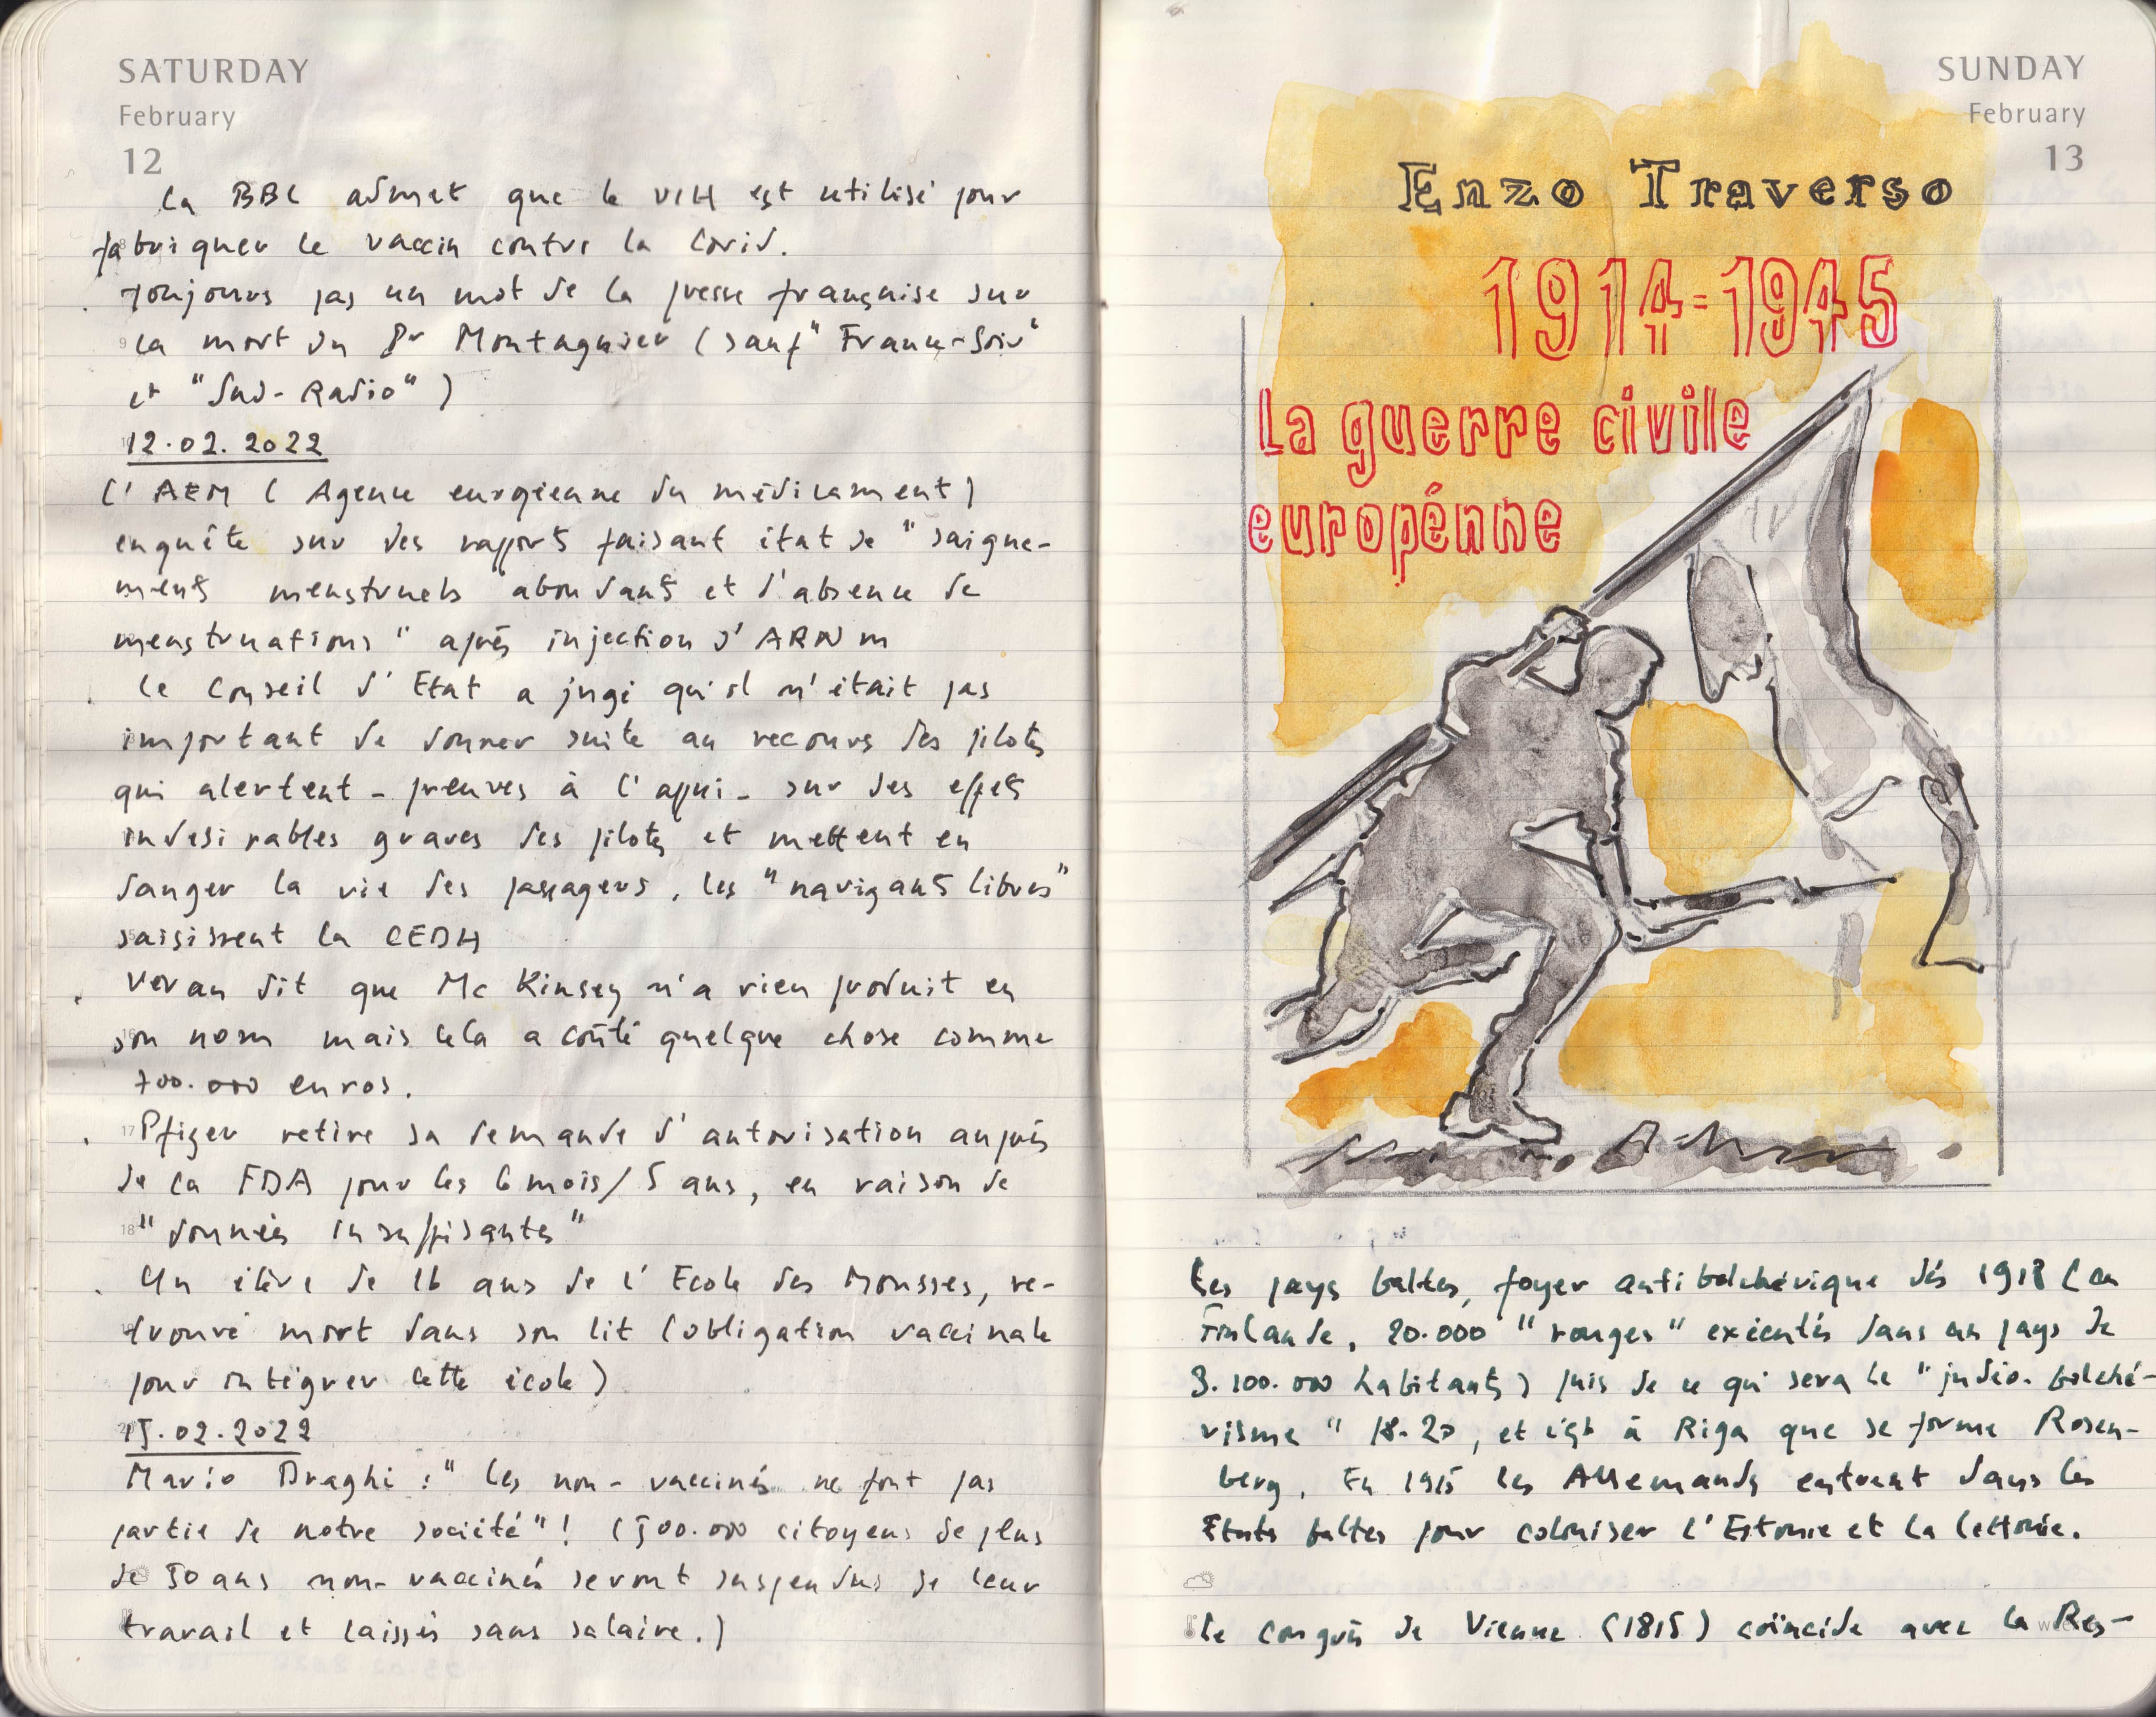 SATURDAY
February
12
La BBC admet que le VIH est utilisé pour
fabriquer le vaccin contre la Covid.
. Toujours pas un mot de la presse française sur
la mort du Pr Montagnier (sauf "France-Soir"
et "Sud-Radio")
12.02.2022
L'AEM (Agence européenne du médicament)
enquête sur des rapports faisant état de "saigne-
ments menstruels abondants et d'absence de
menstruations" après injection d'ARN m
. Le Conseil d'Etat a jugé qu'il n'était pas
important de donner suite au recours des pilotes
qui alertent - preuves à l'appui - sur des effets
indésirables graves des pilotes et mettent en
danger la vie des passagers. Les "navigants libres"
saisissent la CEDH
. Veran dit que Mc Kinsey n'a rien produit en
son nom mais cela a coûté quelque chose comme
700.000 euros.
. Pfizer retire sa demande d'autorisation auprès
de la FDA pour les 6 mois/5 ans, en raison de
"données insuffisantes"
. Un élève de 16 ans de l'Ecole des Mousses, re-
trouvé mort dans son lit (obligation vaccinale
pour intégrer cette école)
15.02.2022
Mario Draghi : "les non-vaccinés ne font pas
partie de notre société"! (500.000 citoyens de plus
de 50 ans non-vaccinés seront suspendus de leur
travail et laissés sans salaire.)
SUNDAY
February
13
Enzo Traverso
1914-1945
La guerre civile
europénne
Les pays baltes, foyer antibolchévique dès 1918 (en
Finlande, 20.000 "rouges" exécutés dans un pays de
3.100.000 habitants) puis de ce qui sera le "judéo-bolché-
visme" 18-20, et c'est à Riga que se forme Rosen-
berg. En 1915 les Allemands entrent dans les
Etats baltes pour coloniser l'Estonie et la Lettonie.
Le congrès de Vienne (1815) coïncide avec la Res-